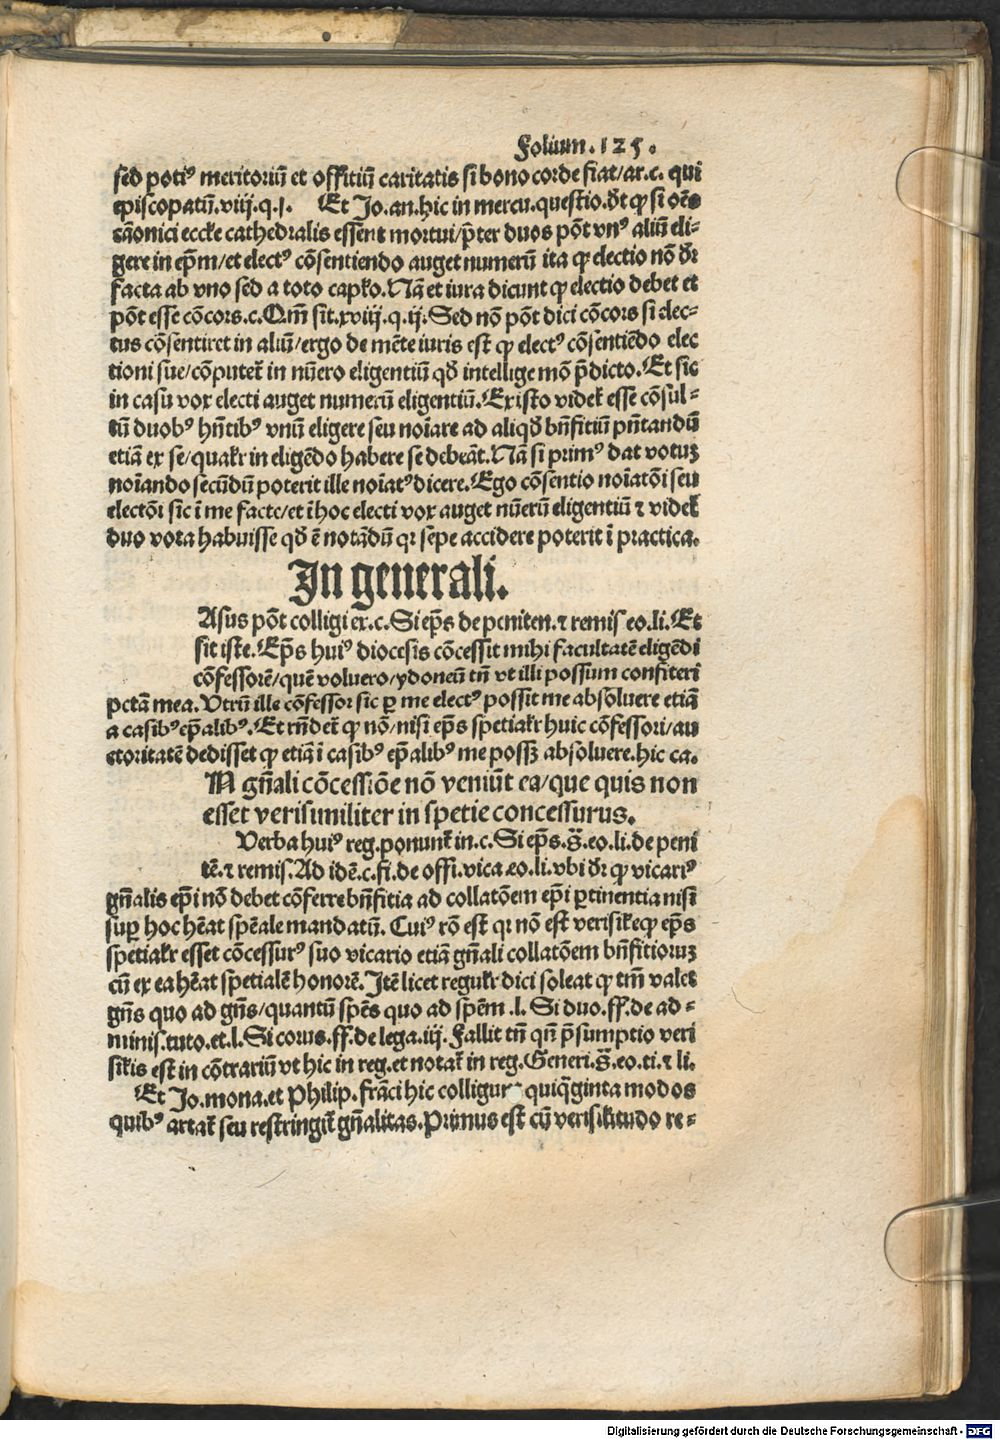 Folium.125.
sed potiꝰ meritoriũ et offitiũ caritatis si bono corde fiat/ar.c. qui
episcopatũ.viij.q.j. Et Jo.an.hic in mercu.questio.dt̃ ꝙ si oẽs
cãonici eccƚe cathedralis essent mortui/p̃ter duos põt vnꝰ aliũ eli-
gere in ep̃m/et electꝰ cõsentiendo auget numerũ ita ꝙ electio nõ dr̃
facta ab vno sed a toto capƚo.Nã et iura dicunt ꝙ electio debet et
põt esse cõcors.c.Qm̃ sit.xviij.q.ij.Sed nõ põt dici cõcors si elec-
tus cõsentiret in aliũ/ergo de mẽte iuris est ꝙ electꝰ cõsentiẽdo elec
tioni sue/cõputet̃ in nũero eligentiũ qđ intellige mõ p̃dicto.Et sic
in casu vox electi auget numerũ eligentiũ.Ex isto videt̃ esse cõsul-
tũ duobꝰ hñtibꝰ vnũ eligere seu noĩare ad aliqđ bñfitiũ pñtandũ
etiã ex se/qualr̃ in eligẽdo habere se debeãt.Nã si primꝰ dat votuꝫ
noĩando secũdũ poterit ille noĩatꝰ dicere.Ego cõsentio noĩatõi seu
electõi sic ĩ me facte/et ĩ hoc electi vox auget nũerũ eligentiũ ⁊ videt̃
duo vota habuisse qđ ẽ notãdũ qꝛ sepe accidere poterit ĩ practica.
In generali.
Asus põt colligi ex.c.Si ep̃s de peniten.⁊ remis̃ eo.li.Et
sit iste.Ep̃s huiꝰ diocesis cõcessit mihi facultatẽ eligẽdi
cõfessorẽ/quẽ voluero/ydoneũ tñ vt illi possum confiteri
pctãmea.Vtrũ ille cõfessor sic ꝑ me electꝰ possit me absoluere etiã
a casibꝰ ep̃alibꝰ.Et rñdet̃ ꝙ nõ/nisi ep̃s spetialr̃ huic cõfessori/au
ctoritatẽ dedisset ꝙ etiã ĩ casibꝰ ep̃alibꝰ me possꝫ absoluere.hic ca.
N gñali cõcessiõe nõ veniũt ea/que quis non
esset verisimiliter in spetie concessurus.
Verba huiꝰ reg.ponunt̃ in.c.Si ep̃s.s̃.eo.li.de peni
tẽ.⁊ remis̃.Ad idẽ.c.fi.de offi.vica.eo.li.vbi dr̃ ꝙ vicariꝰ
gñalis ep̃i nõ debet cõferre bñfitia ad collatõem ep̃i ꝑtinentia nisi
suꝑ hoc hẽat sp̃eale mandatũ. Cuiꝰ rõ est qꝛ nõ est verisiƚe ꝙ ep̃s
spetialr̃ esset cõcessurꝰ suo vicario etiã gñali collatõem bñfitioruꝫ
cũ ex ea hẽat spetialẽ honorẽ.Itẽ licet regulr̃ dici soleat ꝙ tm̃ valet
gñs quo ad gñs/quantũ sp̃es quo ad sp̃em.l. Si duo.ff.de ad-
minis.tuto.et.l.Si corus.ff.de lega.iij.Fallit tñ qñ p̃sumptio veri
siƚis est in cõtrariũ vt hic in reg.et notat̃ in reg.Generi.s̃.eo.ti.⁊ li.
Et Jo.mona.et Philip.frãci hic colligunt quiq̃ginta modos
quibꝰ artat̃ seu restringit̃ gñalitas.Primus est cũ verisilitudo re-
Digitalisierung gefördert durch die Deutsche Forschungsgemeinschaft - DFG